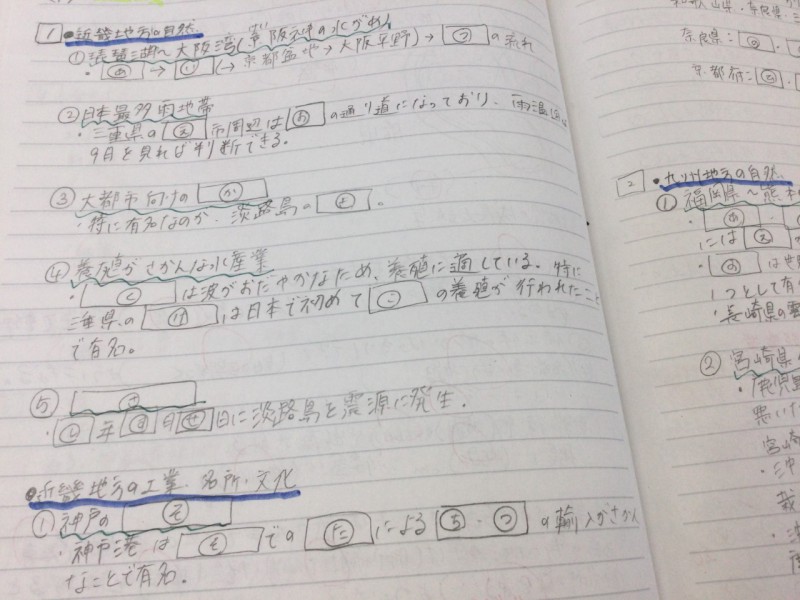 1 ●近畿地方の自然
①琵琶湖~大阪湾(京阪神の水がめ)
・あ→い(→京都盆地→大阪平野)→うの流れ
②日本最多雨地帯
・三重県のえ市周辺はおの通り道になっており、雨温図は
9月を見れば判断できる。
③大都市向けのか
・特に有名なのが、淡路島のき。
④養殖がさかんな水産業
・くは波がおだやかなため、養殖に適している。特に
三重県のけは日本で初めてこの養殖が行われたこと
で有名。
⑤さ
・し年す月せ日に淡路島を震源に発生。
●近畿地方の工業、名所・文化
①神戸のそ
・神戸港はそでのたによるち・つの輸入がさかん
なことで有名。
奈良県:
京都府:
2 ●九州地方の自然
①福岡県~熊本
・あ
にはえの
・おは世
1つとして有
・長崎県の
②宮崎県
・鹿児島
悪い
宮崎
・沖
栽